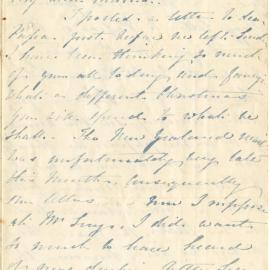 My dear Mama..
I posted a letter to dear
Papa just before we left
I have been thinking so much
of you all to day, and fancy
what a different Christmas
you will spend to what we
shall. The New Zealand mail
was unfortunately very late
this month, consequently
our letters are now I suppose
at Mr
I did want
so much to have heard